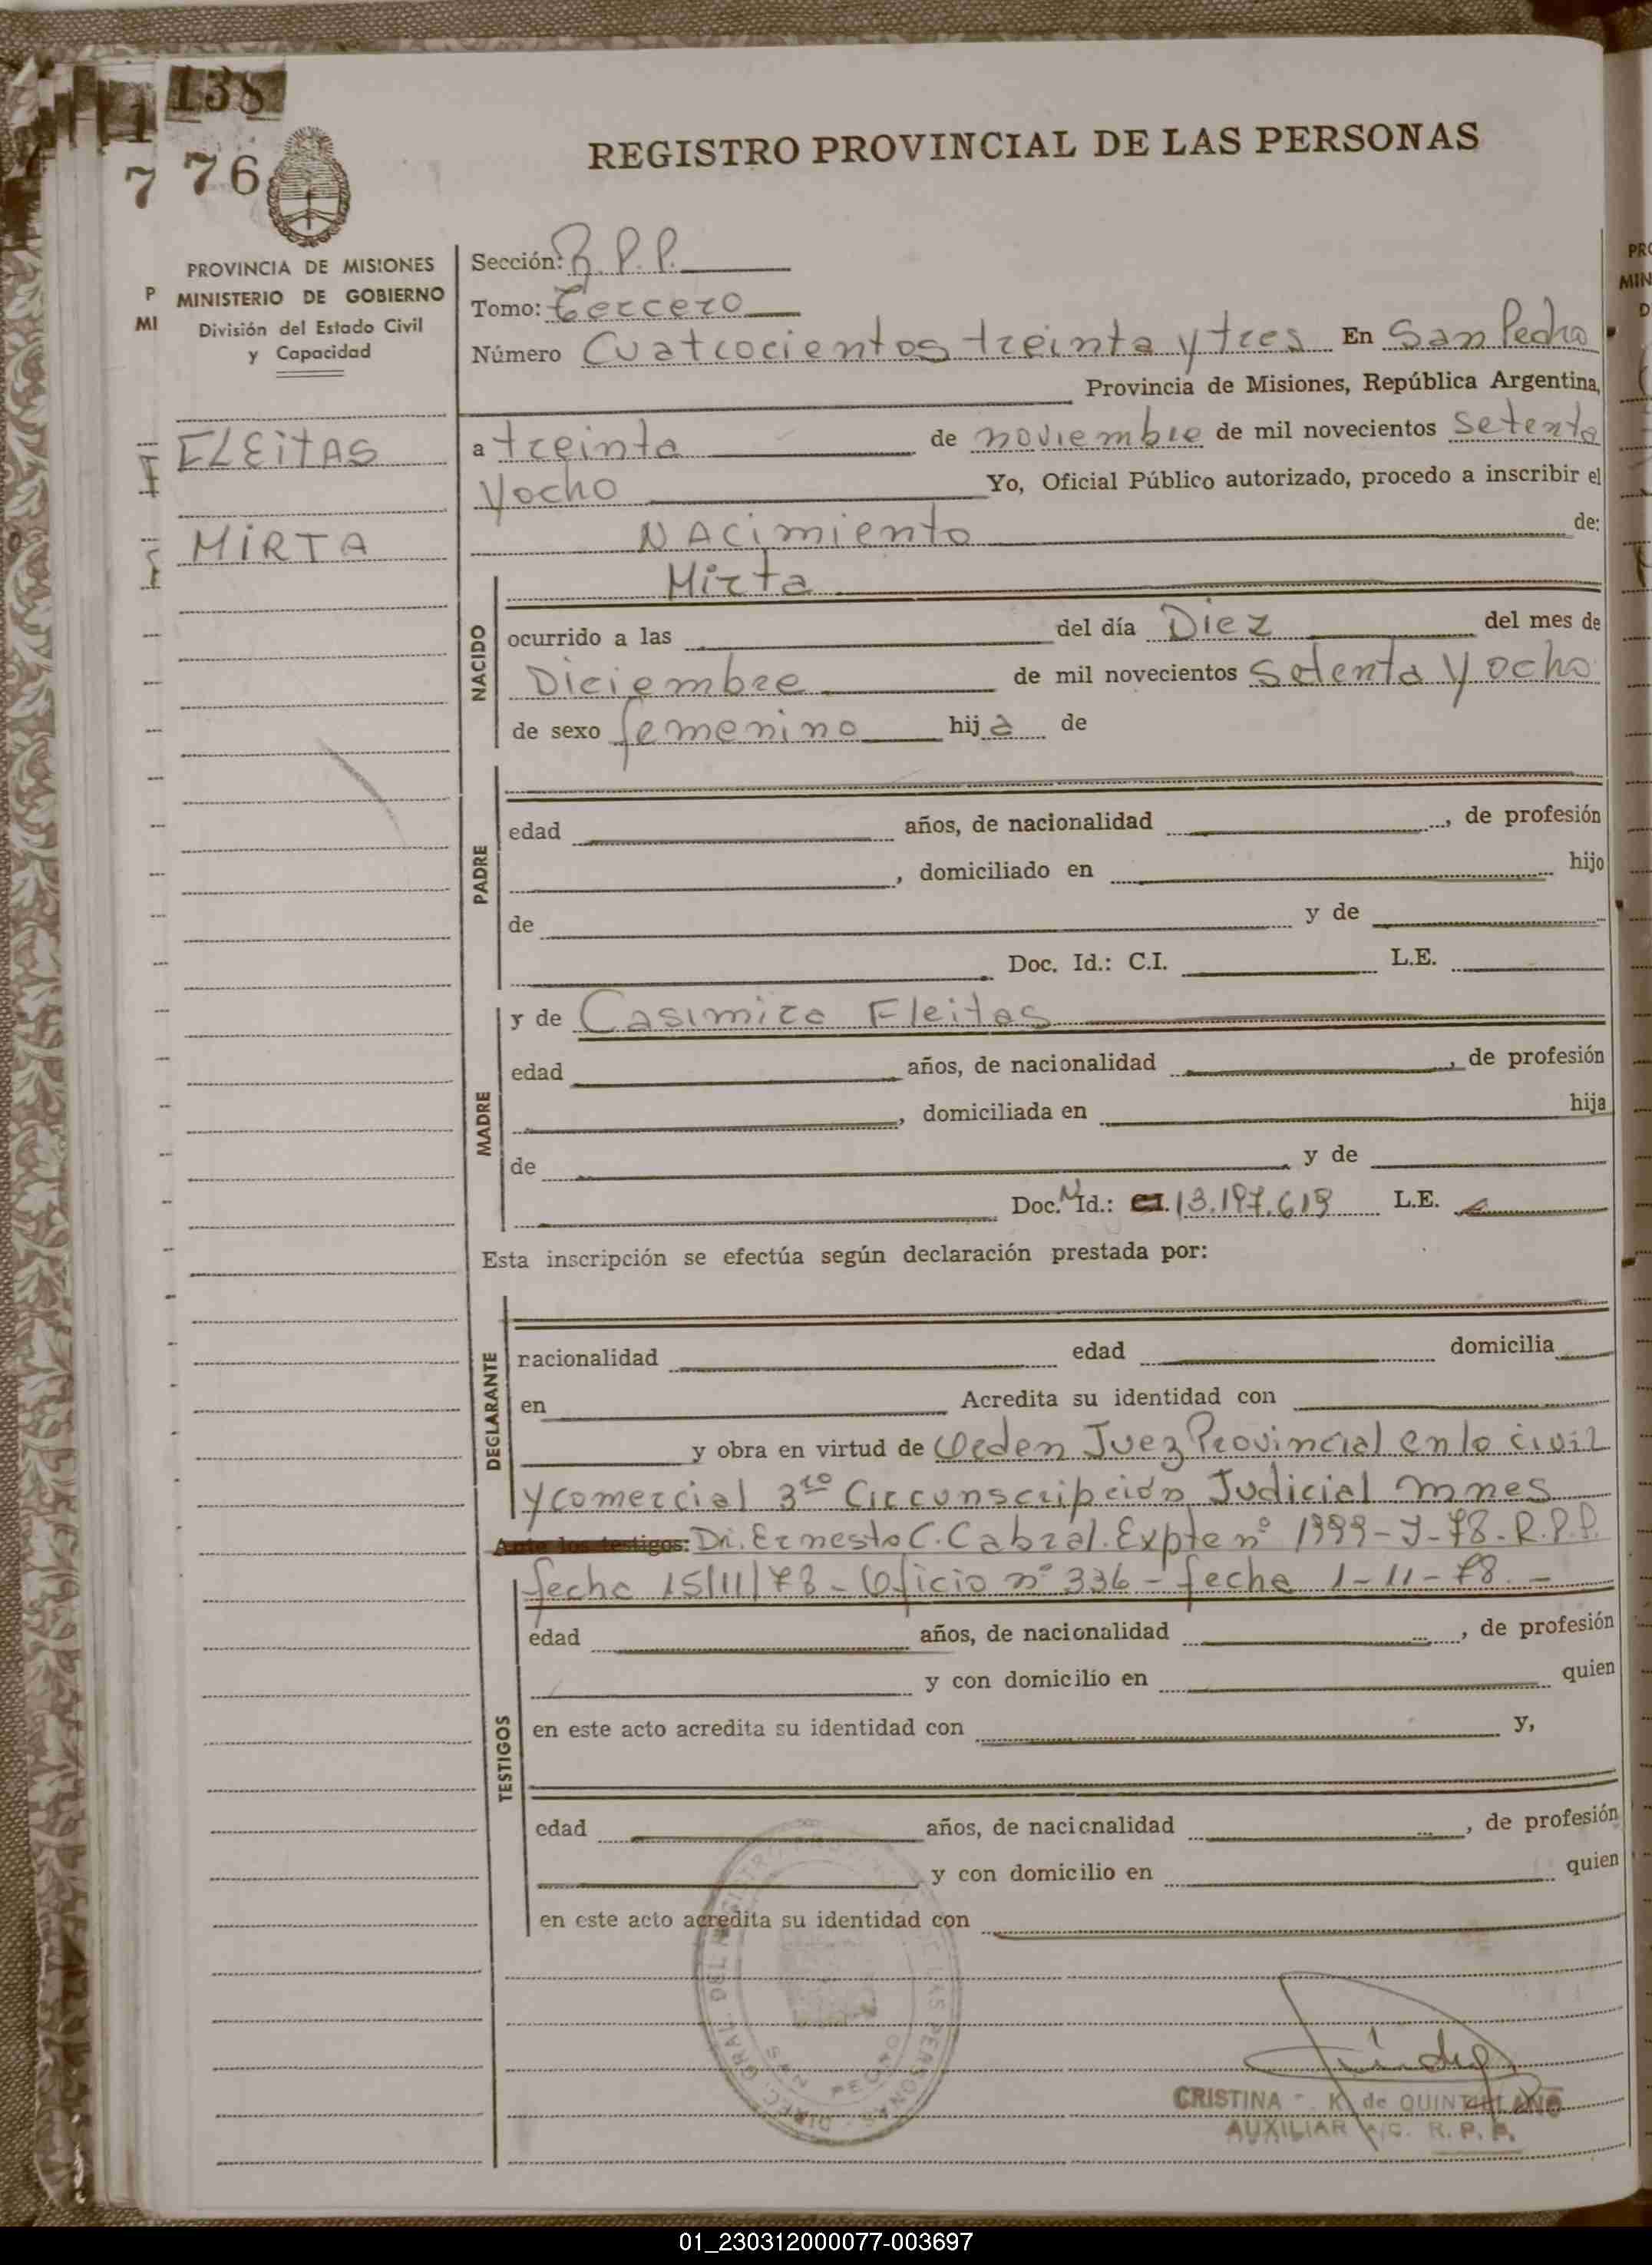 138
1
7 76
REGISTRO PROVINCIAL DE LAS PERSONAS
PROVINCIA DE MISIONES
P MINISTERIO DE GOBIERNO
MI División del Estado Civil
y Capacidad
FLEITAS
MIRTA
Sección: R.P.P.
Tomo: tercero
Número Cuatrocientos treinta y tres En San Pedro
Provincia de Misiones, República Argentina,
a treinta de noviembre de mil novecientos setenta
y ocho Yo, Oficial Público autorizado, procedo a inscribir el
NAcimiento de:
Mirta
NACIDO
ocurrido a las del día Diez del mes de
Diciembre de mil novecientos setenta y ocho
de sexo femenino hija de
PADRE
edad años, de nacionalidad , de profesión
, domiciliado en hijo
de y de
Doc. Id.: C.I. L.E.
MADRE
y de Casimira Fleitas
edad años, de nacionalidad , de profesión
, domiciliada en hija
de y de
Doc. N Id.: C.I. 13.197.619 L.E.
Esta inscripción se efectúa según declaración prestada por:
DECLARANTE
nacionalidad edad domicilia
en Acredita su identidad con
y obra en virtud de Orden Juez Provincial en lo civil
y comercial 3ra Circunscripción Judicial mnes
Ante los testigos: Dr. Ernesto C. Cabral. Expte nº 1999-J-78-R.P.P.
fecha 15/11/78 - Oficio nº 336 - fecha 1-11-78. -
TESTIGOS
edad años, de nacionalidad , de profesión
y con domicilio en quien
en este acto acredita su identidad con y,
edad años, de nacionalidad , de profesión
y con domicilio en quien
en este acto acredita su identidad con
DIREC. GRAL. DEL REGISTRO DE LAS PERSONAS
SAN PEDRO
CRISTINA K. de QUINTELANO
AUXILIAR A/C. R. P. P.
01_230312000077-003697